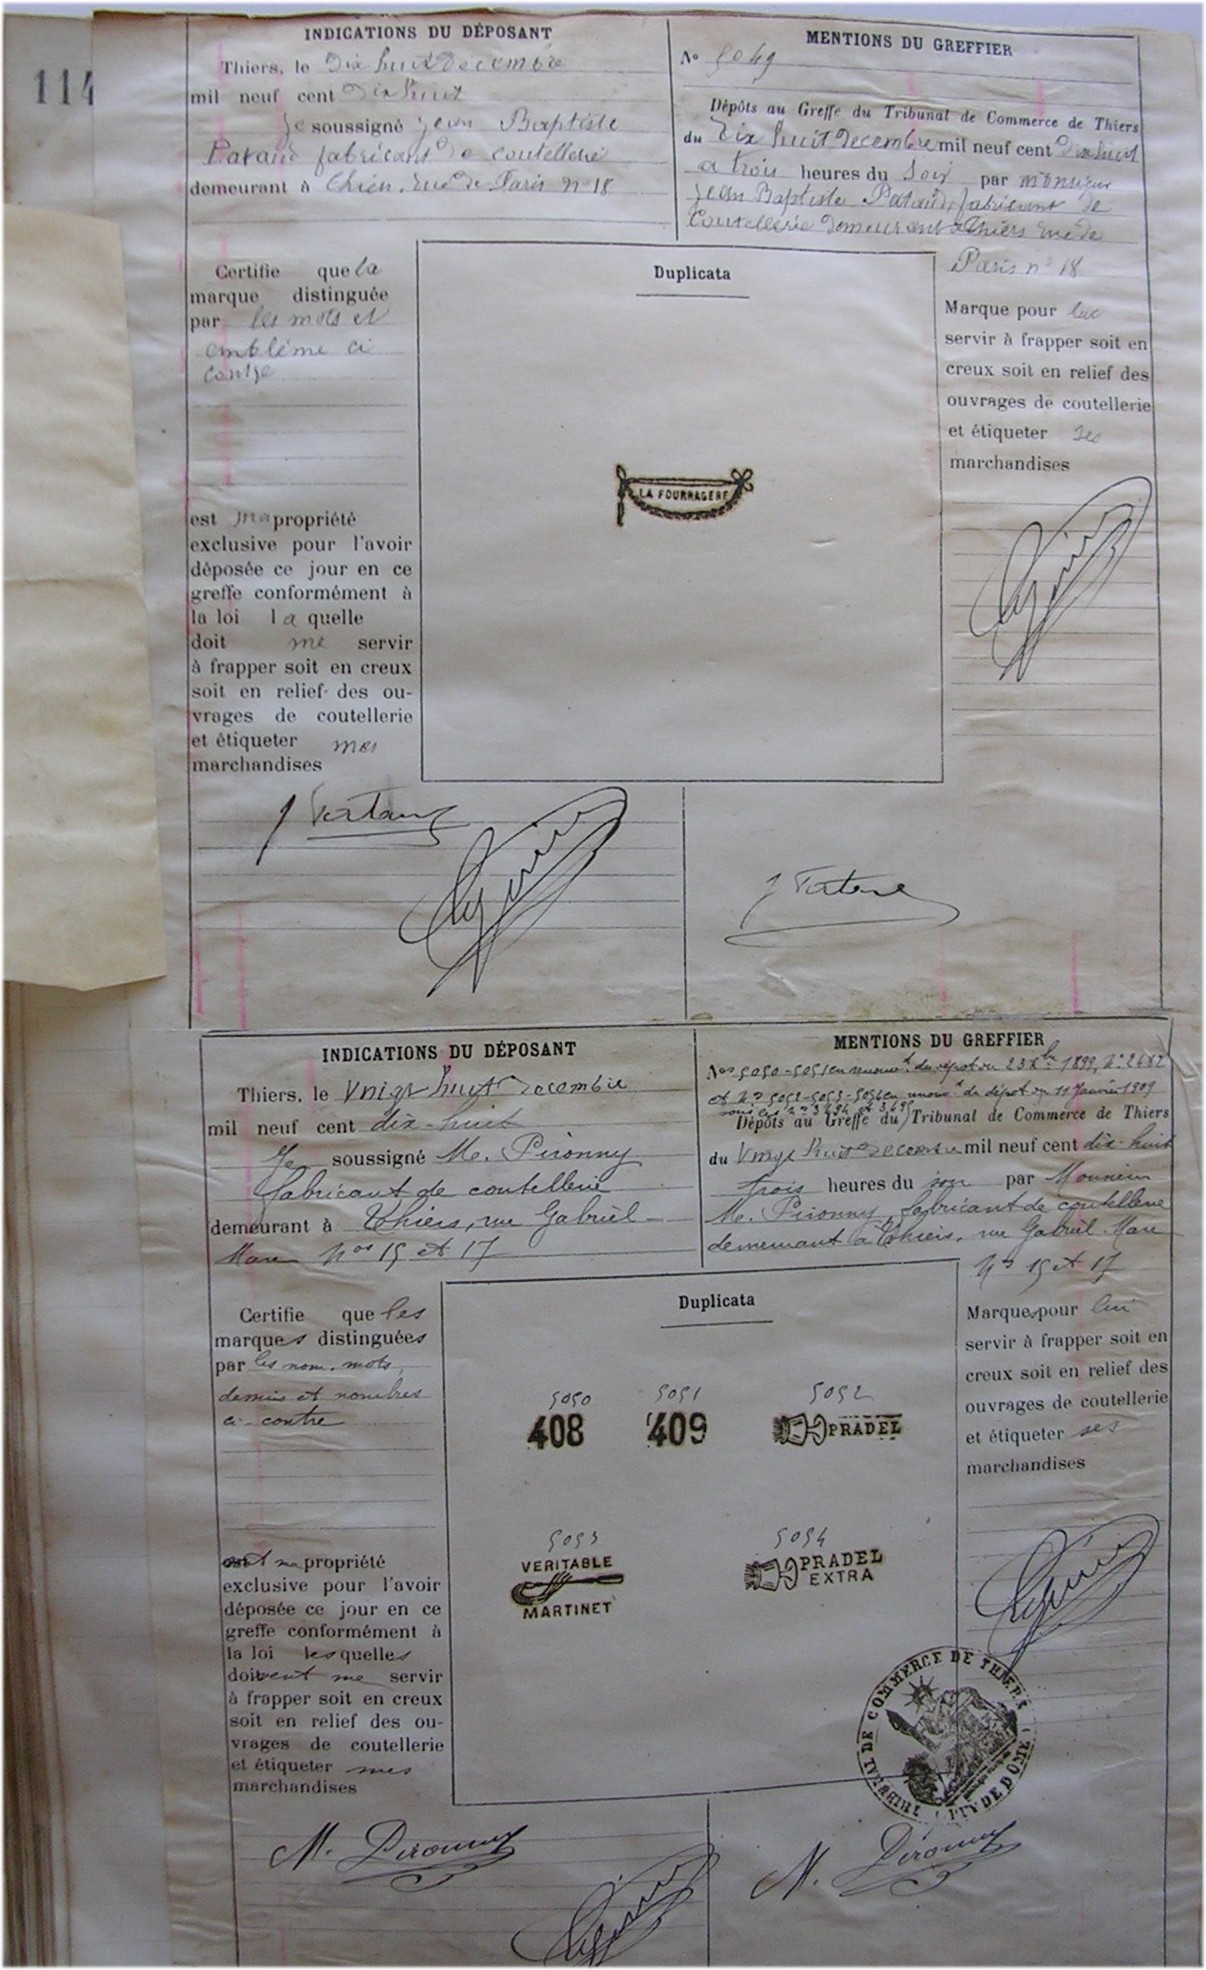 114
INDICATIONS DU DÉPOSANT
Thiers, le Dix huit Decembre
mil neuf cent Dix huit
Je soussigné Jean Baptiste
Pataud fabricant De coutellerie
demeurant à Thiers, rue de Paris nº 18
MENTIONS DU GREFFIER
Nº 5049
Dépôts au Greffe du Tribunal de Commerce de Thiers
du Dix huit Decembre mil neuf cent Dix huit
a trois heures du Soir par monsieur
Jean Baptiste Pataud, fabricant de
Coutellerie Demeurant a Thiers rue de
Paris nº 18
Certifie que la
marque distinguée
par les mots et
emblème ci
contre
est ma propriété
exclusive pour l'avoir
déposée ce jour en ce
greffe conformément à
la loi la quelle
doit me servir
à frapper soit en creux
soit en relief des ou-
vrages de coutellerie
et étiqueter mes
marchandises
Duplicata
LA FOURRAGERE
Marque pour lui
servir à frapper soit en
creux soit en relief des
ouvrages de coutellerie
et étiqueter ses
marchandises
INDICATIONS DU DÉPOSANT
Thiers, le Vingt huit Decembre
mil neuf cent dix-huit
Je soussigné M. Pironny
fabricant de coutellerie
demeurant à Thiers, rue Gabriel
Marc Nos 15 et 17
MENTIONS DU GREFFIER
Nos 5050-5051 en renouv.t du dépot du 23 Xbre 1899, Nº 2482
et Nos 5052-5053-5054 en renouv.t du dépot du 11 Janvier 1909
sous les nos 3494 et
Dépôts au Greffe du Tribunal de Commerce de Thiers
du Vingt huit Decembre mil neuf cent dix-huit
trois heures du soir par Monsieur
M. Pironny, fabricant de coutellerie
demeurant à Thiers, rue Gabriel Marc
Nos 15 et 17
Certifie que les
marques distinguées
par les nom, mots,
dessins et nombres
ci-contre
sont ma propriété
exclusive pour l'avoir
déposée ce jour en ce
greffe conformément à
la loi lesquelles
doivent me servir
à frapper soit en creux
soit en relief des ou-
vrages de coutellerie
et étiqueter mes
marchandises
Duplicata
5050 5051 5052
408 409 PRADEL
5053 5054
VERITABLE
MARTINET
PRADEL
EXTRA
Marques pour lui
servir à frapper soit en
creux soit en relief des
ouvrages de coutellerie
et étiqueter ses
marchandises
TRIBUNAL DE COMMERCE DE THIERS
(PUY DE DOME)
M. Pironny
M. Pironny